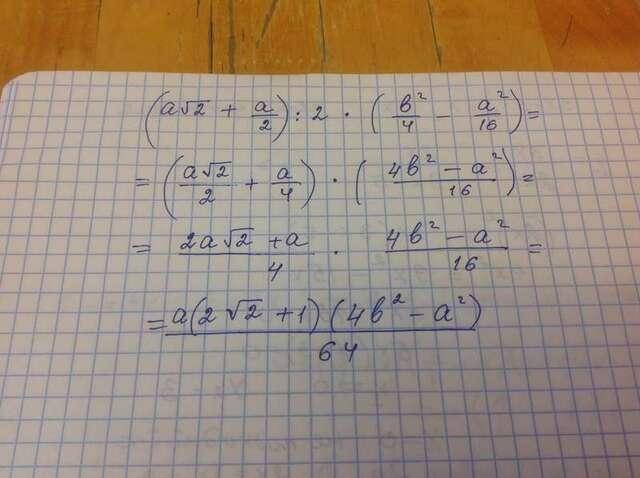 (a√2 + a/2) : 2 · (b²/4 − a²/16) =
= (a√2/2 + a/4) · (4b² − a²/16) =
= 2a√2 + a/4 · 4b² − a²/16 =
= a(2√2 + 1)(4b² − a²)/64